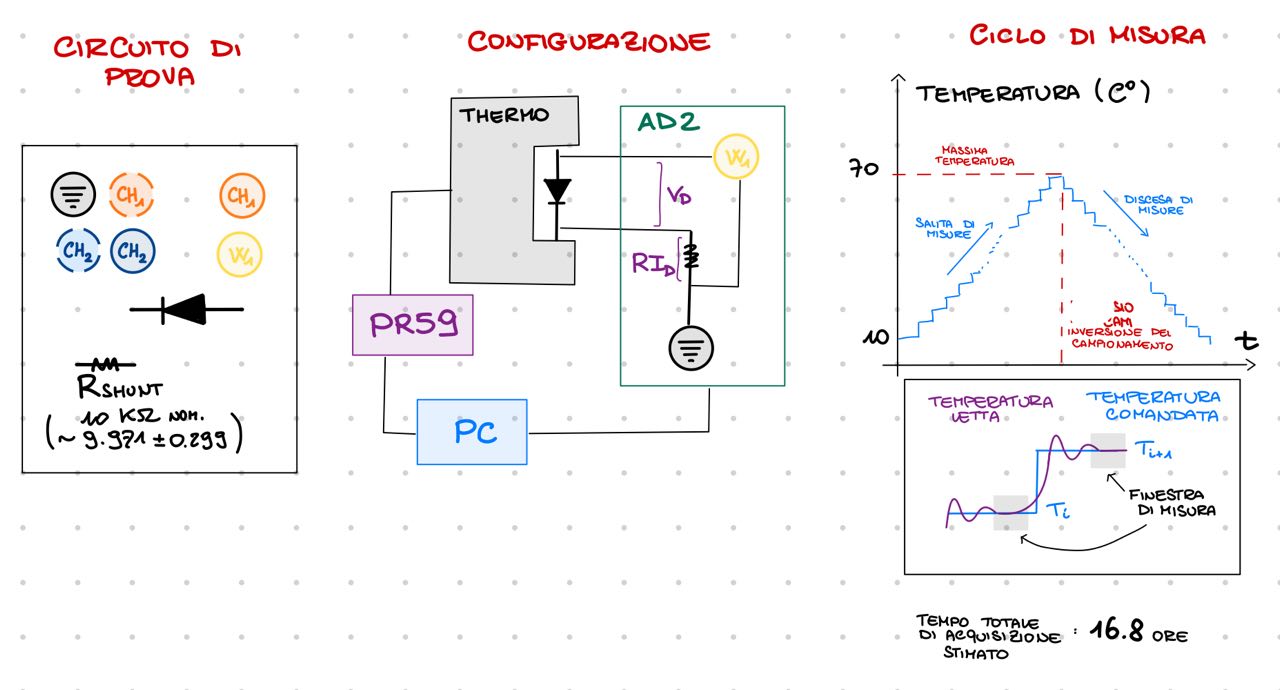 CIRCUITO DI
PROVA
CH1
CH1
CH2
CH2
W1
RSHUNT
10 KΩ NOM.
(~ 9.971 ± 0.299)
CONFIGURAZIONE
THERMO
AD2
W1
VD
RID
PR59
PC
CICLO DI MISURA
TEMPERATURA (C°)
MASSIMA
TEMPERATURA
70
SALITA DI
MISURE
DISCESA DI
MISURE
INVERSIONE DEL
CAMPIONAMENTO
10
t
TEMPERATURA
LETTA
TEMPERATURA
COMANDATA
Ti+1
Ti
FINESTRA
DI MISURA
TEMPO TOTALE
DI ACQUISIZIONE : 16.8 ORE
STIMATO